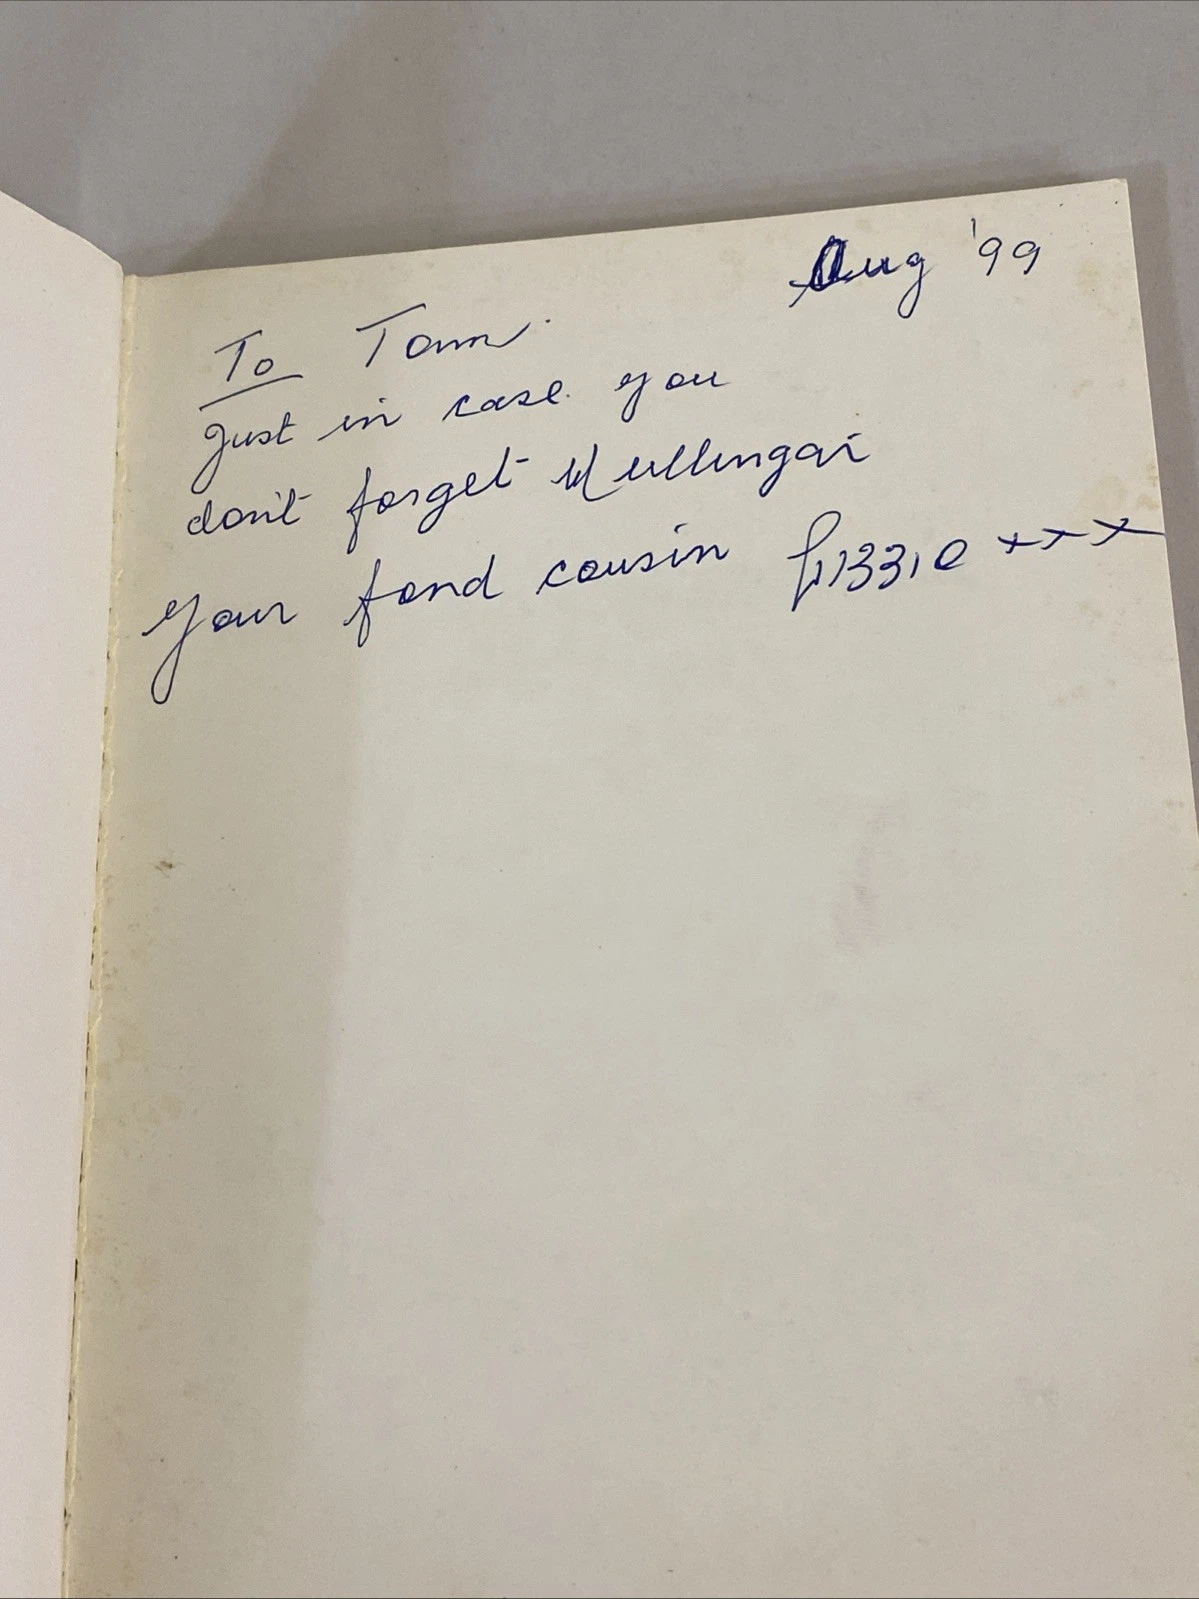 Aug '99
To Tom.
Just in case you
don't forget Mullingar
Your fond cousin Lizzie xxx